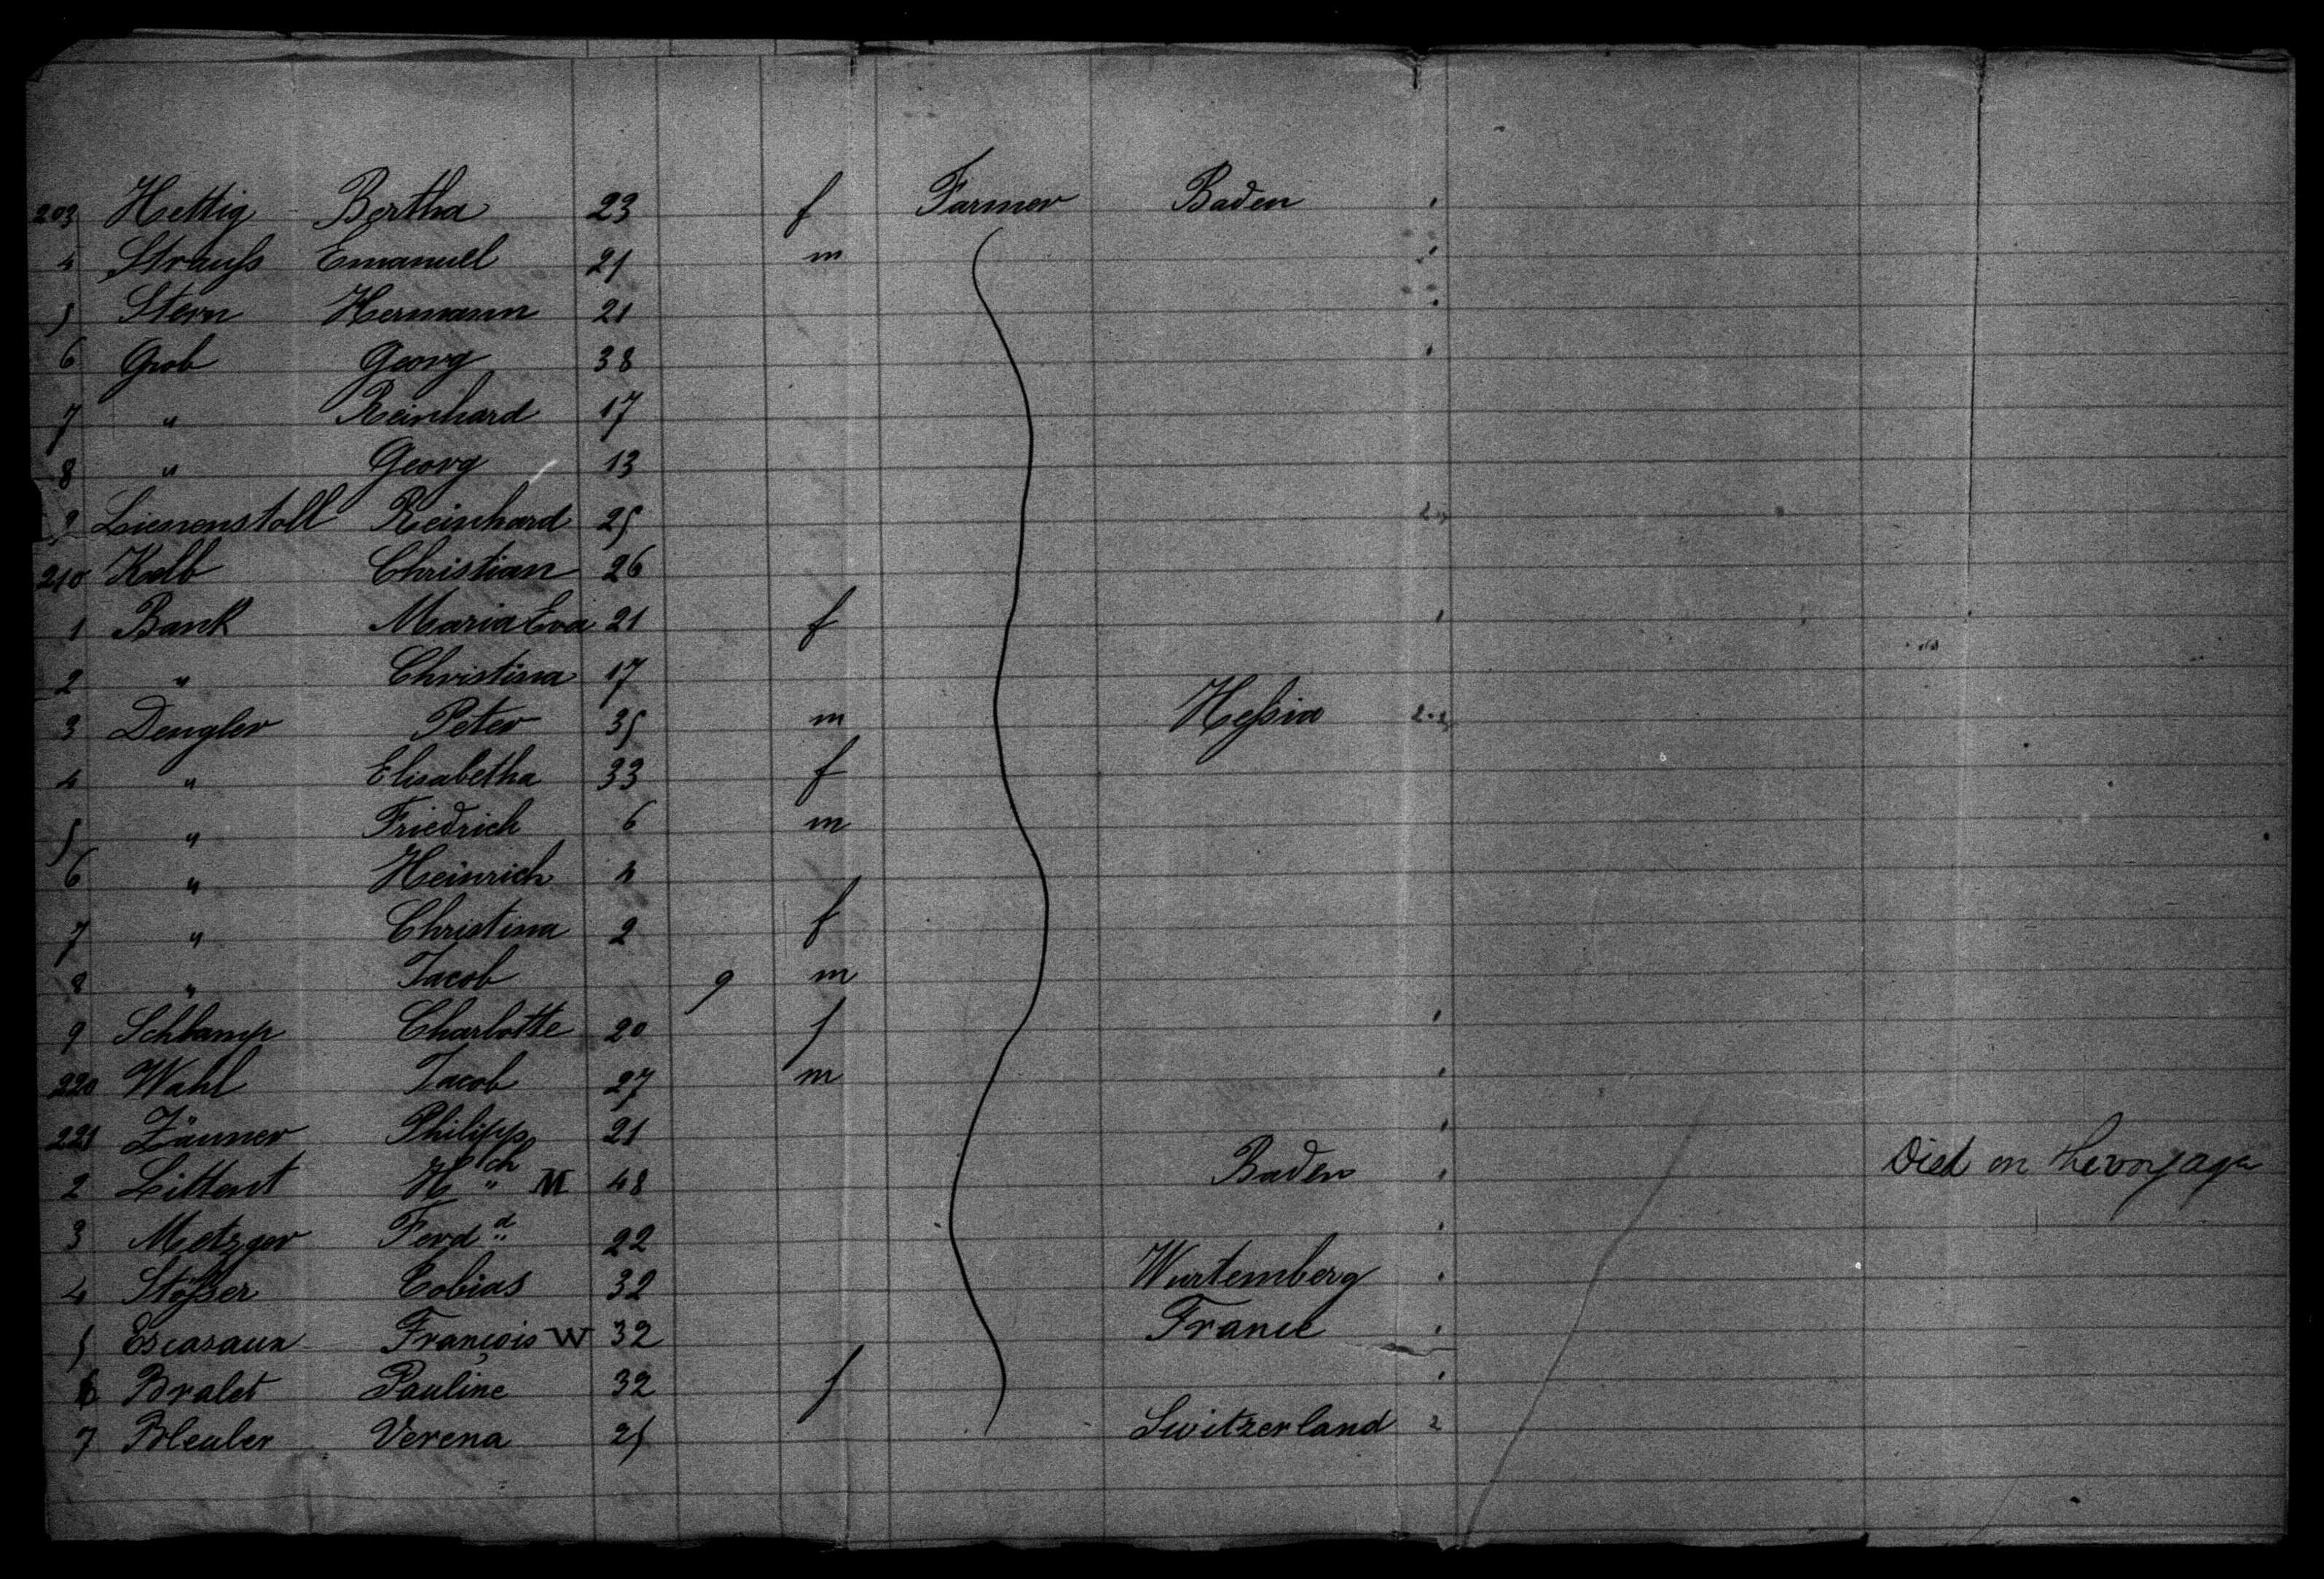 203 Hettig Bertha 23 f Farmer Baden
4 Strauß Emanuel 21 m
5 Stern Hermann 21
6 Grob Georg 38
7 " Reinhard 17
8 " Georg 13
9 Lienenstoll Reinhard 25
210 Kolb Christian 26
1 Bank Maria Eva 21 f
2 " Christina 17
3 Dengler Peter 35 m Heßia
4 " Elisabetha 33 f
5 " Friedrich 6 m
6 " Heinrich 4
7 " Christina 2 f
8 " Jacob 9 m
9 Schlamp Charlotte 20 f
220 Wahl Jacob 27 m
221 Zäuner Philipp 21
2 Littent Hch M 48 Baden Died on the voyage
3 Metzger Ferdd 22
4 Stößer Tobias 32 Wurtemberg
5 François W 32 France
6 Bralet Pauline 32 f
7 Bleuler Verena 25 Switzerland 2